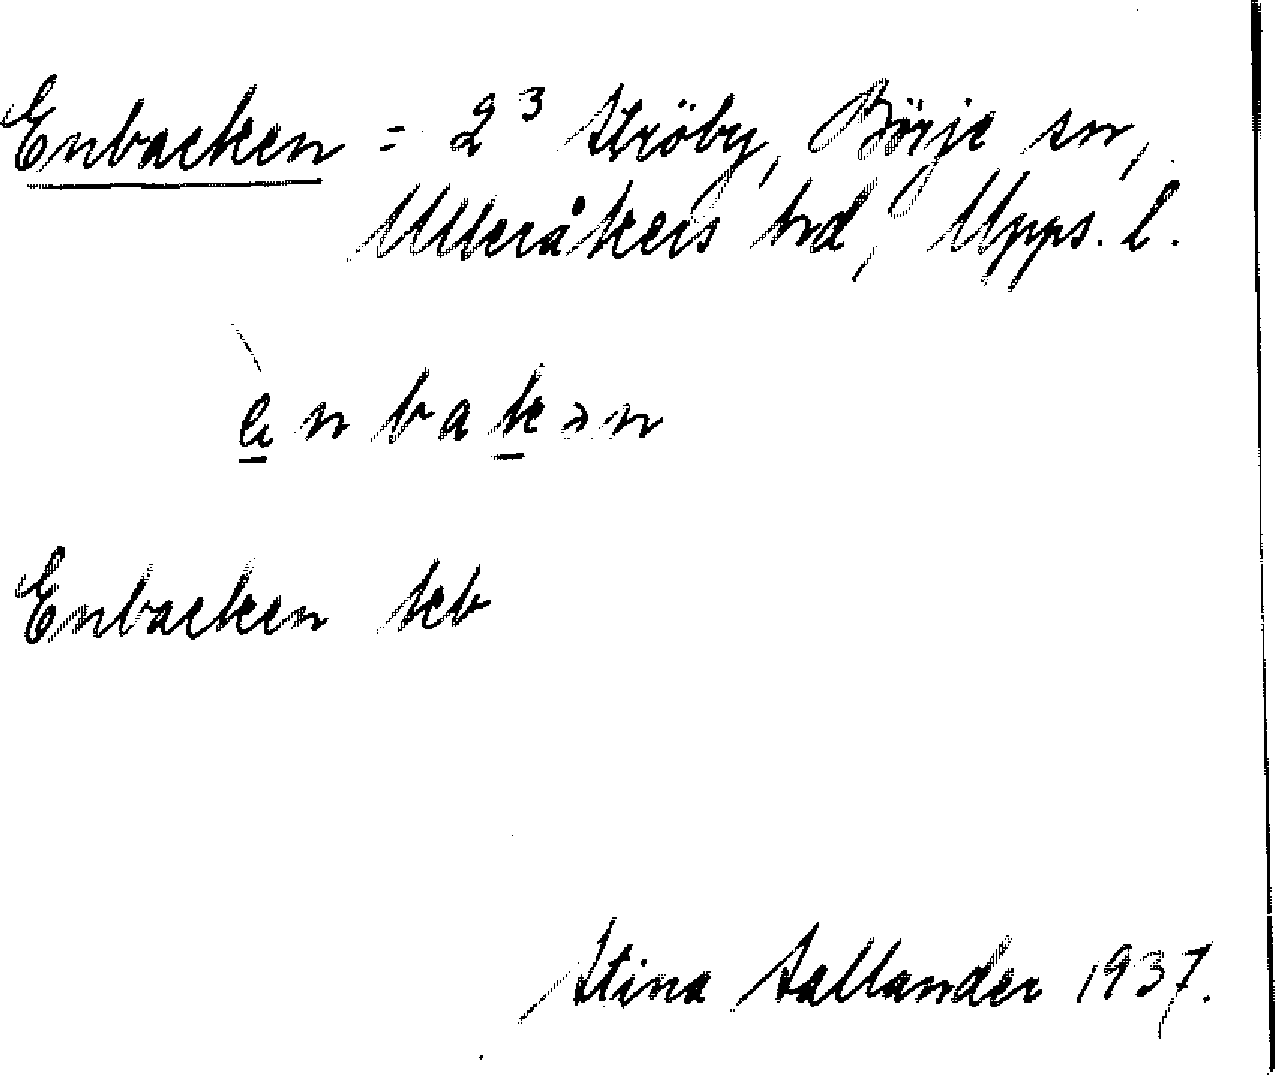 Enbacken = 2³ Ströby, Börje sn,
Ulleråkers hrd, Upps. l.
è̱nbaḵən
Enbacken kb
Stina Sallander 1937.